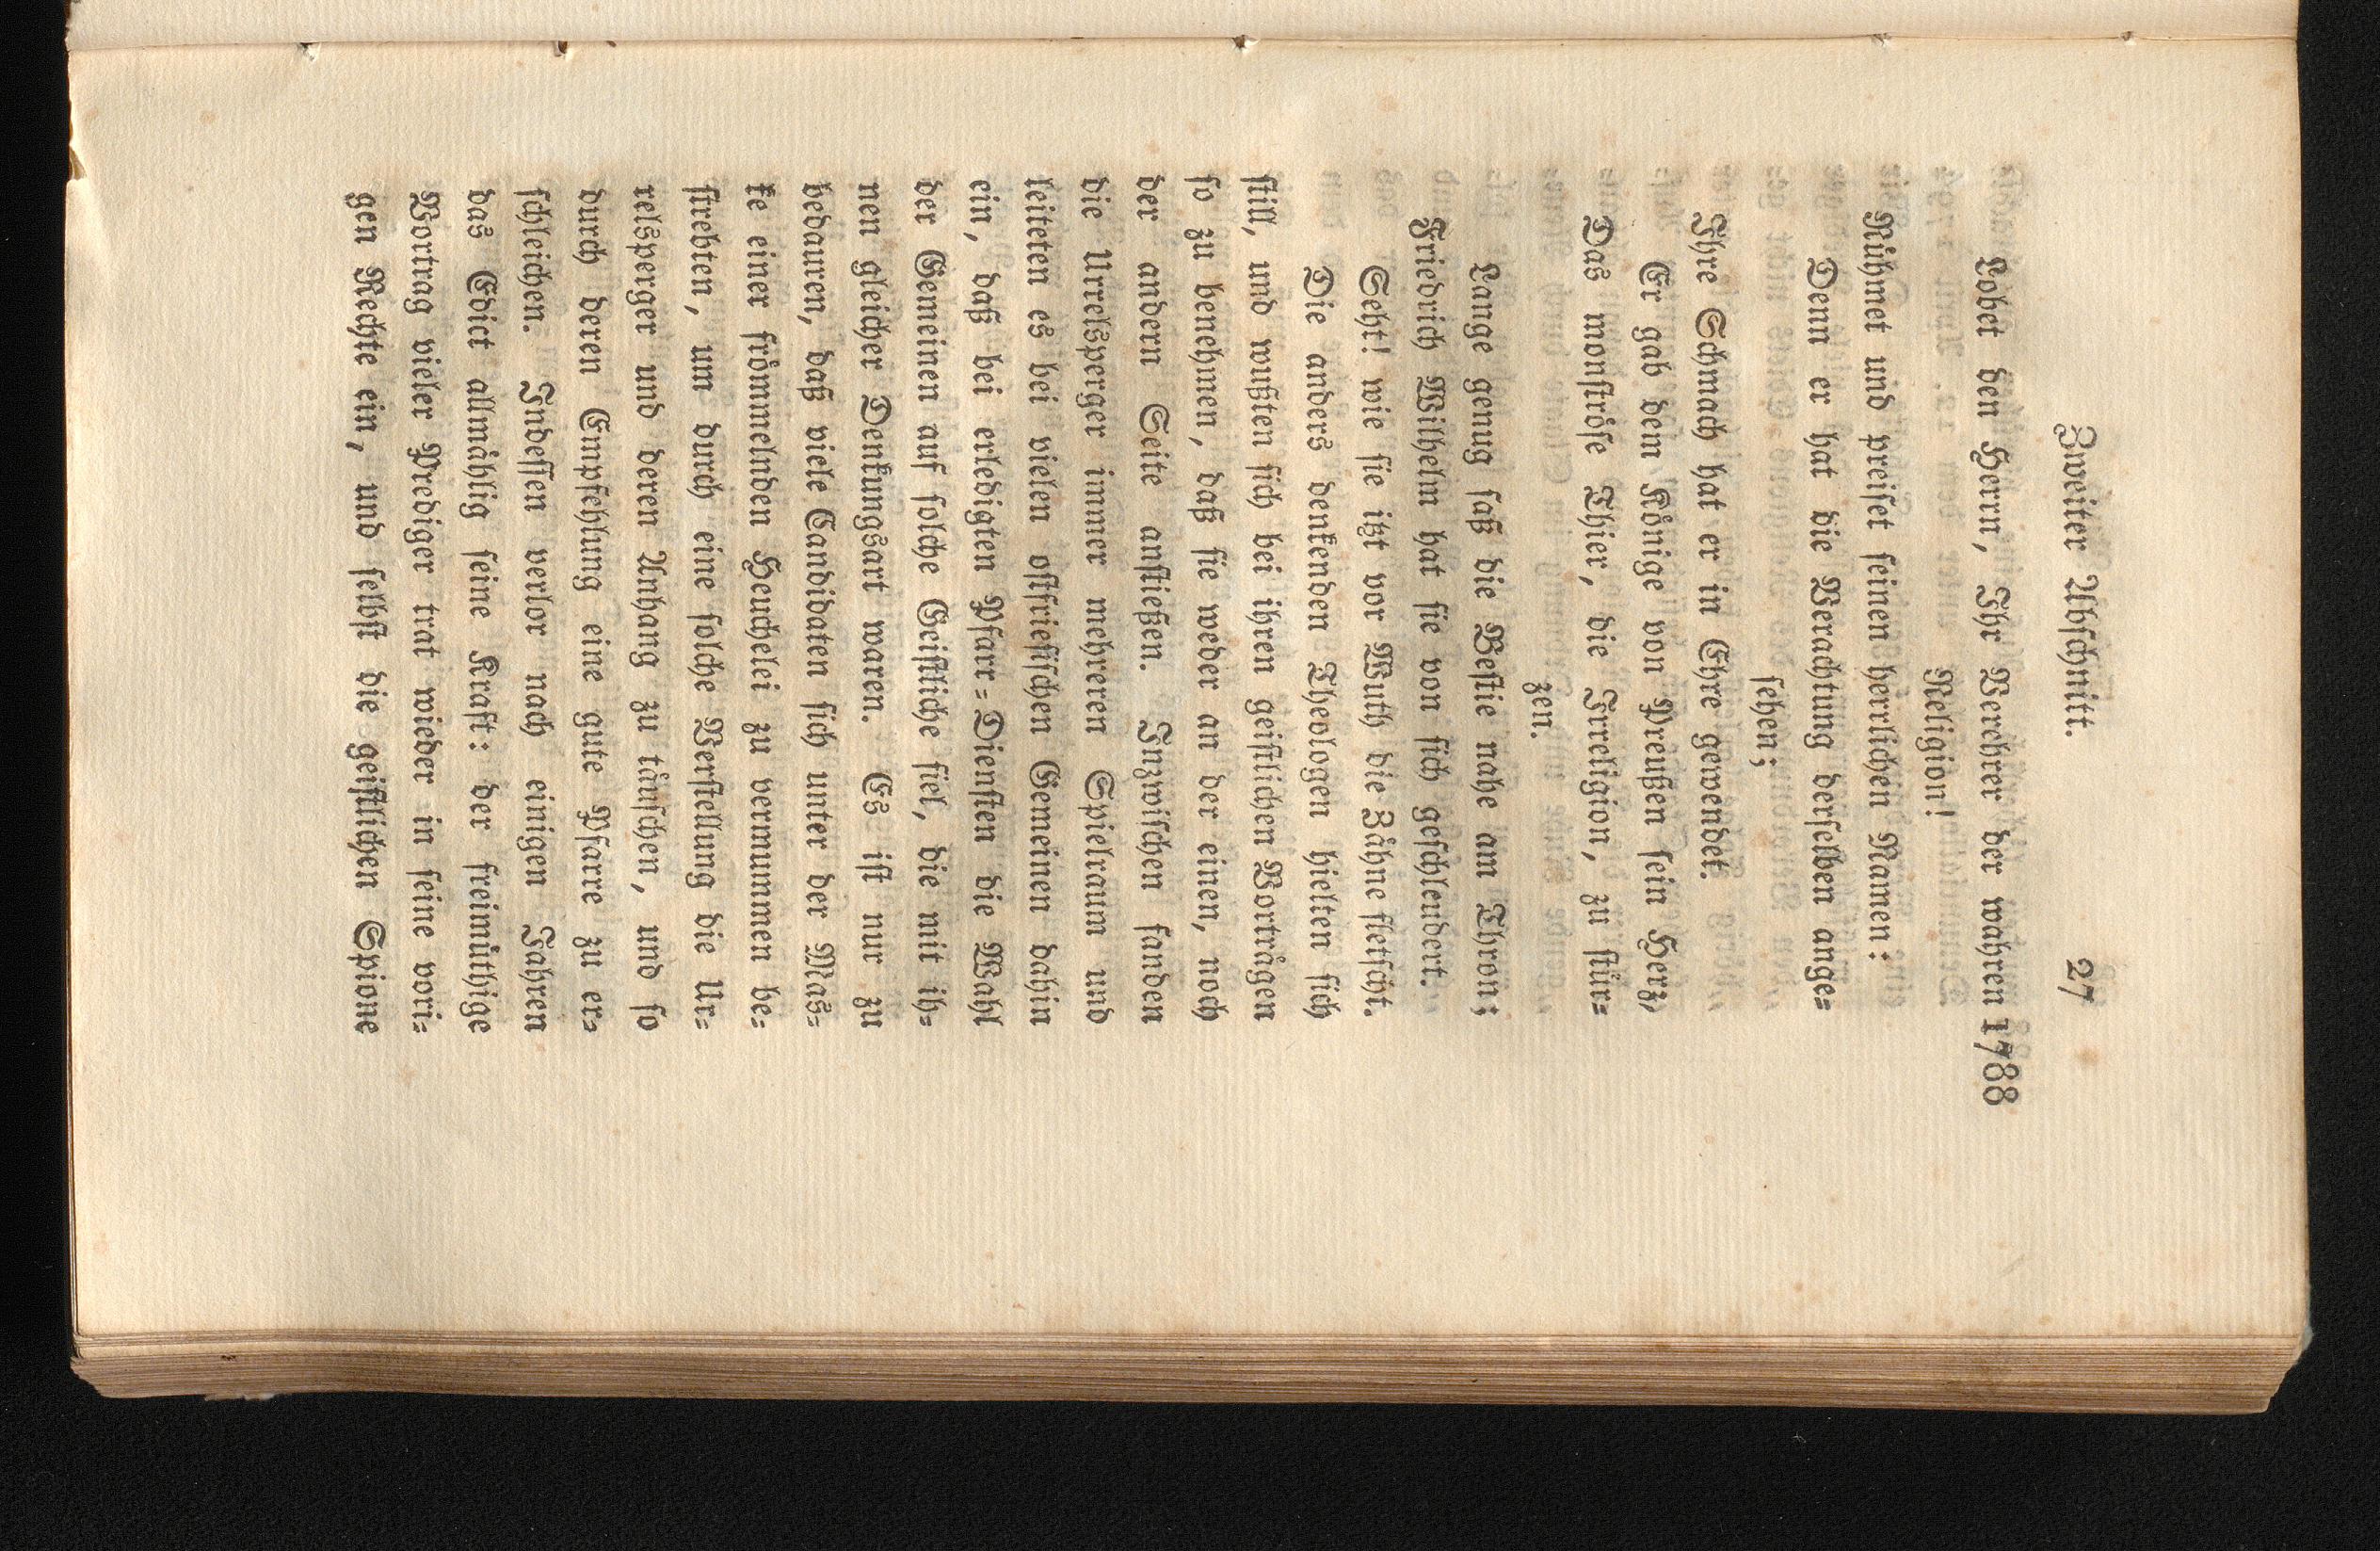 Zweiter Abschnitt. 27
Lobet den Herrn, Ihr Verehrer der wahren 1788
Religion!
Rühmet und preiset seinen herrlichen Namen:
Denn er hat die Verachtung derselben ange-
sehen;
Ihre Schmach hat er in Ehre gewendet.
Er gab dem Könige von Preußen sein Herz,
Das monströse Thier, die Irreligion, zu stür-
zen.
Lange genug saß die Bestie nahe am Thron;
Friedrich Wilhelm hat sie von sich geschleudert.
Seht! wie sie itzt vor Wuth die Zähne fletscht.
Die anders denkenden Theologen hielten sich
still, und wußten sich bei ihren geistlichen Vorträgen
so zu benehmen, daß sie weder an der einen, noch
der andern Seite anstießen. Inzwischen fanden
die Urrelsperger immer mehreren Spielraum und
leiteten es bei vielen ostfriesischen Gemeinen dahin
ein, daß bei erledigten Pfarr-Diensten die Wahl
der Gemeinen auf solche Geistliche fiel, die mit ih-
nen gleicher Denkungsart waren. Es ist nur zu
bedauren, daß viele Candidaten sich unter der Mas-
ke einer frömmelnden Heuchelei zu vermummen be-
strebten, um durch eine solche Verstellung die Ur-
relsperger und deren Anhang zu täuschen, und so
durch deren Empfehlung eine gute Pfarre zu er-
schleichen. Indessen verlor nach einigen Jahren
das Edict allmählig seine Kraft: der freimüthige
Vortrag vieler Prediger trat wieder in seine vori-
gen Rechte ein, und selbst die geistlichen Spione